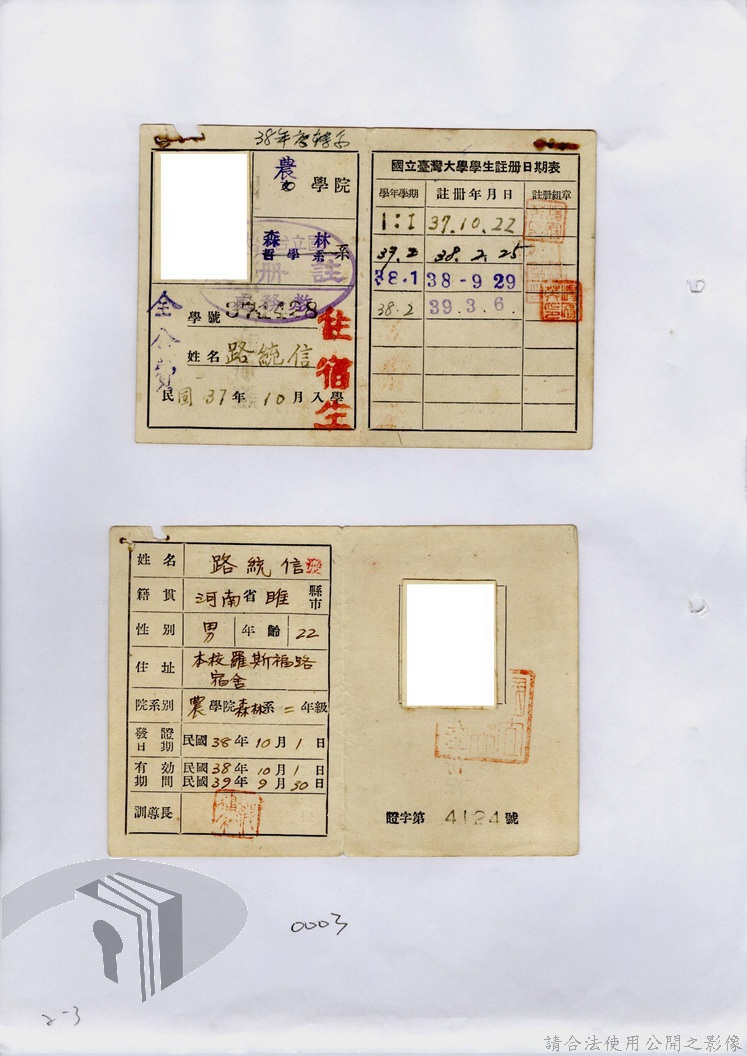 38年度轉系
農
文 學院
森林
哲學系 系
註冊
教務
學號
姓名 路統信
民國 37 年 10 月入學
全公費
住宿生
國立臺灣大學學生註册日期表
學年學期 註冊年月日 註册組章
1:I 37.10.22
37.2 38.2.25
38.1 38-9 29
38.2 39.3.6.
姓名 路統信
籍貫 河南省睢縣市
性別 男 年齡 22
住址 本校羅斯福路宿舍
院系別 農學院森林系二年級
發證日期 民國38年10月1日
有効期間 民國38年10月1日
民國39年9月30日
訓導長
證字第 4124 號
0003
2-3
請合法使用公開之影像